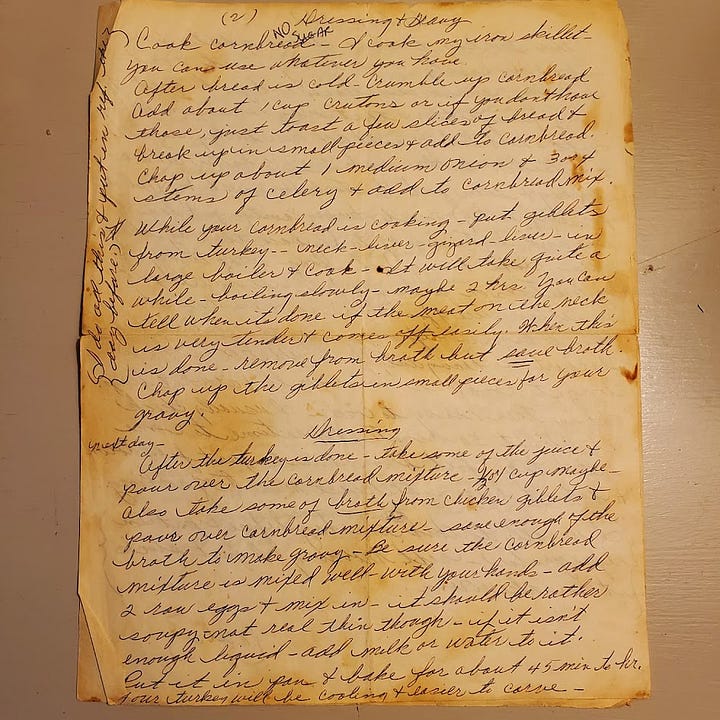 (2) Dressing & Gravy
NO SUGAR
Cook cornbread - I cook my iron skillet -
you can use whatever you have.
After bread is cold - crumble up cornbread
add about 1 cup crutons or if you don't have
those, just toast a few slices of bread &
break up in small pieces & add to cornbread.
Chop up about 1 medium onion & 3 or 4
stems of celery & add to cornbread mix.
While your cornbread is cooking - put giblets
from turkey -- neck - liver - gizard - liver - in
large boiler & cook - It will take quite a
while - boiling slowly - maybe 2 hrs. You can
tell when its done if the meat on the neck
is very tender & comes off easily. When this
is done - remove from broth but save broth.
Chop up the giblets in small pieces for your
gravy.
I do all this & put in ref.
day before.
Dressing
next day -
After the turkey is done - take some of the juice &
pour over the cornbread mixture - cup maybe -
also take some of broth from chicken giblets &
pour over cornbread mixture - save enough of the
broth to make gravy - Be sure the cornbread
mixture is mixed well - with your hands - add
2 raw eggs & mix in - it should be rather
soupy - not real thin though - if it isn't
enough liquid - add milk or water to it.
Put it in pan & bake for about 45 min to hr.
Your turkey will be cooling & easier to carve -